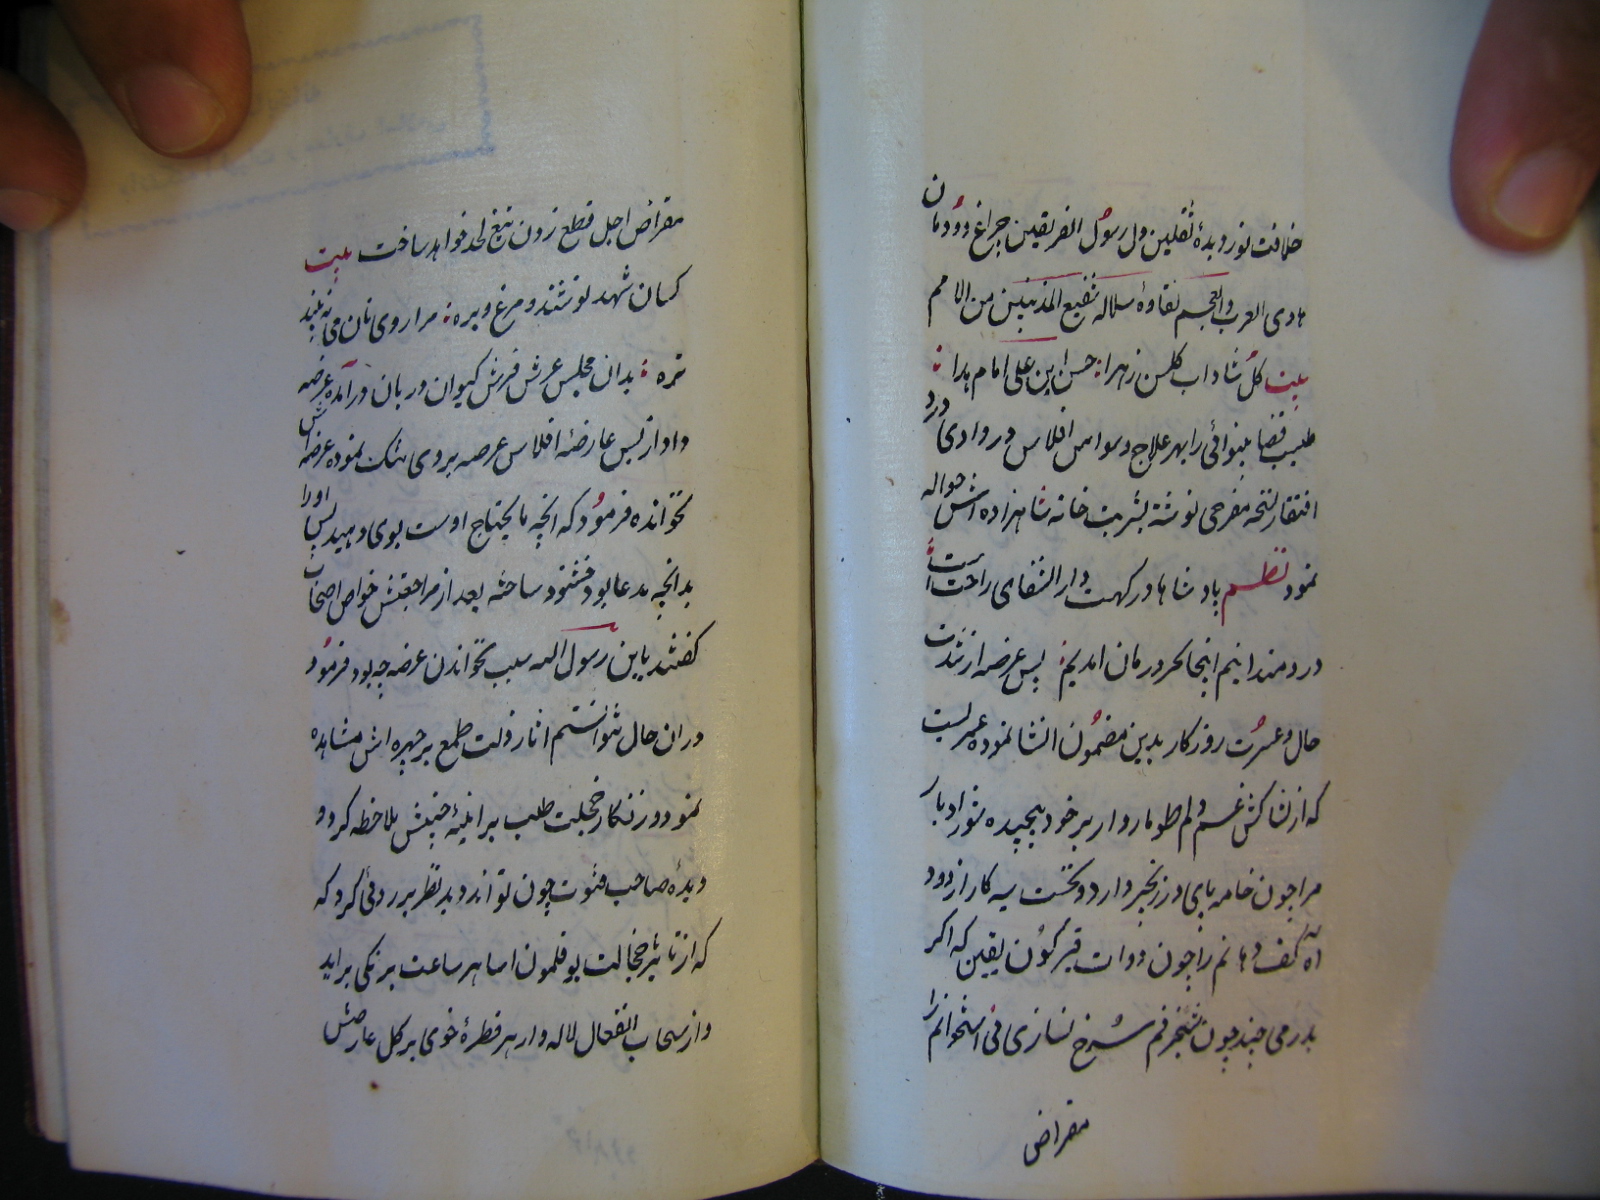 خلافت نور دیدهٔ ثقلین ول رسول الفریقین چراغ دودمان
هادی العرب والعجم نقاوهٔ سلاله شفیع المذنبین من الامم
بیت کل شاداب کلسن زهرا حسن ابن علی امام هدا
طبیب قضا بینوائی را بهر علاج وسواس افلاس در وادی درد
افتقار نسخه مفرحی نوشته بشربت خانه شاهزاده اش حواله
نمود نظم پادشاها درکهت دار الشفای راحت است
دردمندانیم اینجا بهر درمان امدیم پس عرضه از شدت
حال و عسرت روزکار بدین مضمون انشا نموده عمریست
که از کشاکش غم دلم طوماروار بر خود پیچیده نور ادبار
مرا چون خامه پای در زنجیر دارد و بخت سیه کار از دود
آه کف دهانم را چون دوات قیرکون یقین که اکر
بدرمی چند چون شنجرفم سرخ نسازی فی استخوانم را
مقراض
مقراض اجل قطع زدن تیغ لحد خواهد ساخت بیت
کسان شهد نوشند و مرغ و بره مرا روی نان می نه بیند
تره بدان مجلس عرش فرش کیوان دربان درآمده عرضه
داد از بس عارضهٔ افلاس عرصه بروی تنک نموده عرضه اش
نخوانده فرمود که انچه مایحتاج اوست بوی دهید پس اورا
بدانچه مدعا بود خشنود ساخته بعد از مراجعتش خواص اصحاب
کفتند یابن رسول الله سبب نخواندن عرضه چه بود فرمود
دران حال نتوانستم اثار ذلت طمع بر چهره اش مشاهده
نمود و زنکار خجلت طلب بر ائینهٔ جبینش ملاحظه کرد و
دیدهٔ صاحب فتوت چون تواند دید نظر بر ردئی کرد که
که از تاثیر خجالت بوقلمون اسا هر ساعت برنکی براید
و از سحاب انفعال لاله وار هر قطرهٔ خوی بر کل عارضش